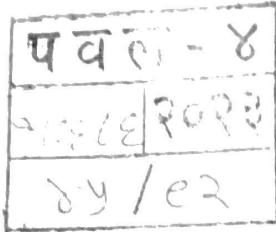 पवल - ४
२०२३
४५/९२